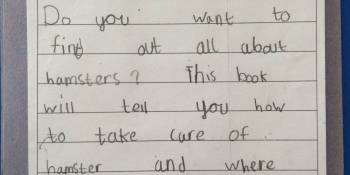 Do you want to
find out all about
hamsters? This book
will tell you how
to take care of
hamster and where